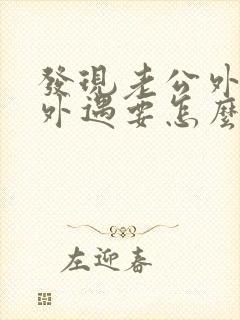 發現老公外
外遇要怎麼
左迎春